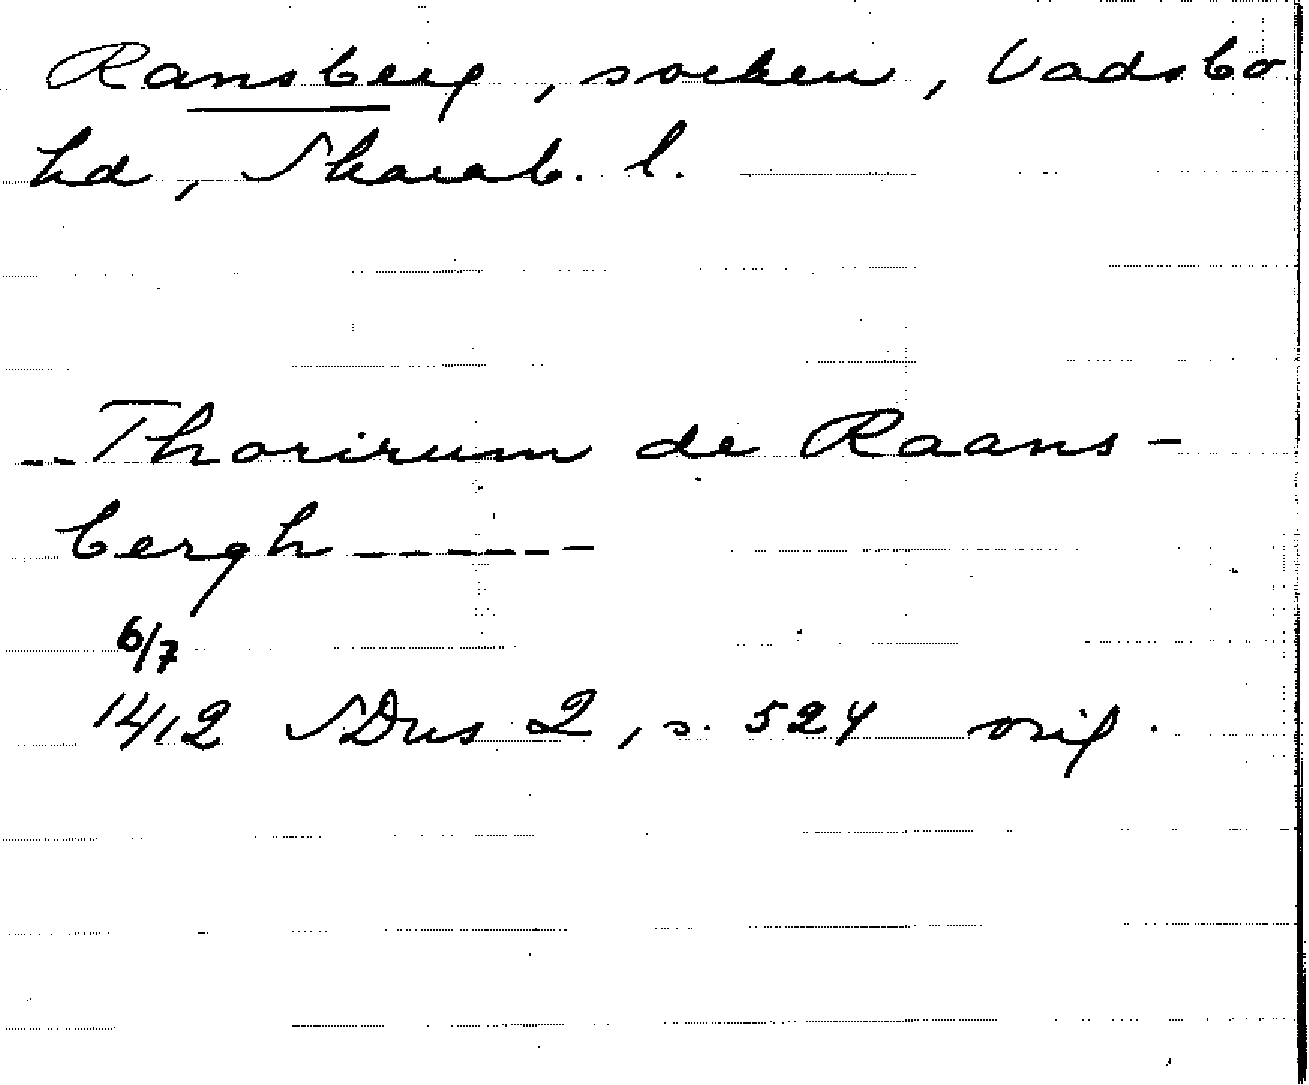 Ransberg, socken, Vadsbo
hd, Skarab. l.
-- Thorirum de Raans-
bergh ------
6/7
1412 SDns 2, s. 524 orig.